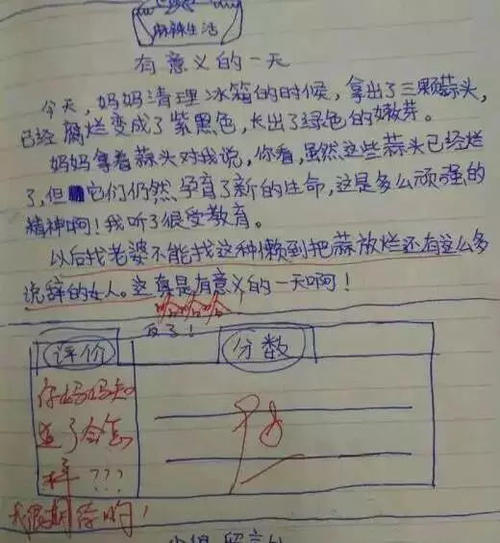 麻辣生活
有意义的一天
今天,妈妈清理冰箱的时候,拿出了三颗蒜头,
已经腐烂变成了紫黑色,长出了绿色的嫩芽。
妈妈拿着蒜头对我说,你看,虽然这些蒜头已经烂
了,但它们仍然孕育了新的生命,这是多么顽强的
精神啊!我听了很受教育。
以后找老婆不能找这种懒到把蒜放烂还有这么多
说辞的女人。这真是有意义的一天啊!
哈哈哈
反了!
评价
分数
你妈妈知
道了会怎
样???
我很期待哟!